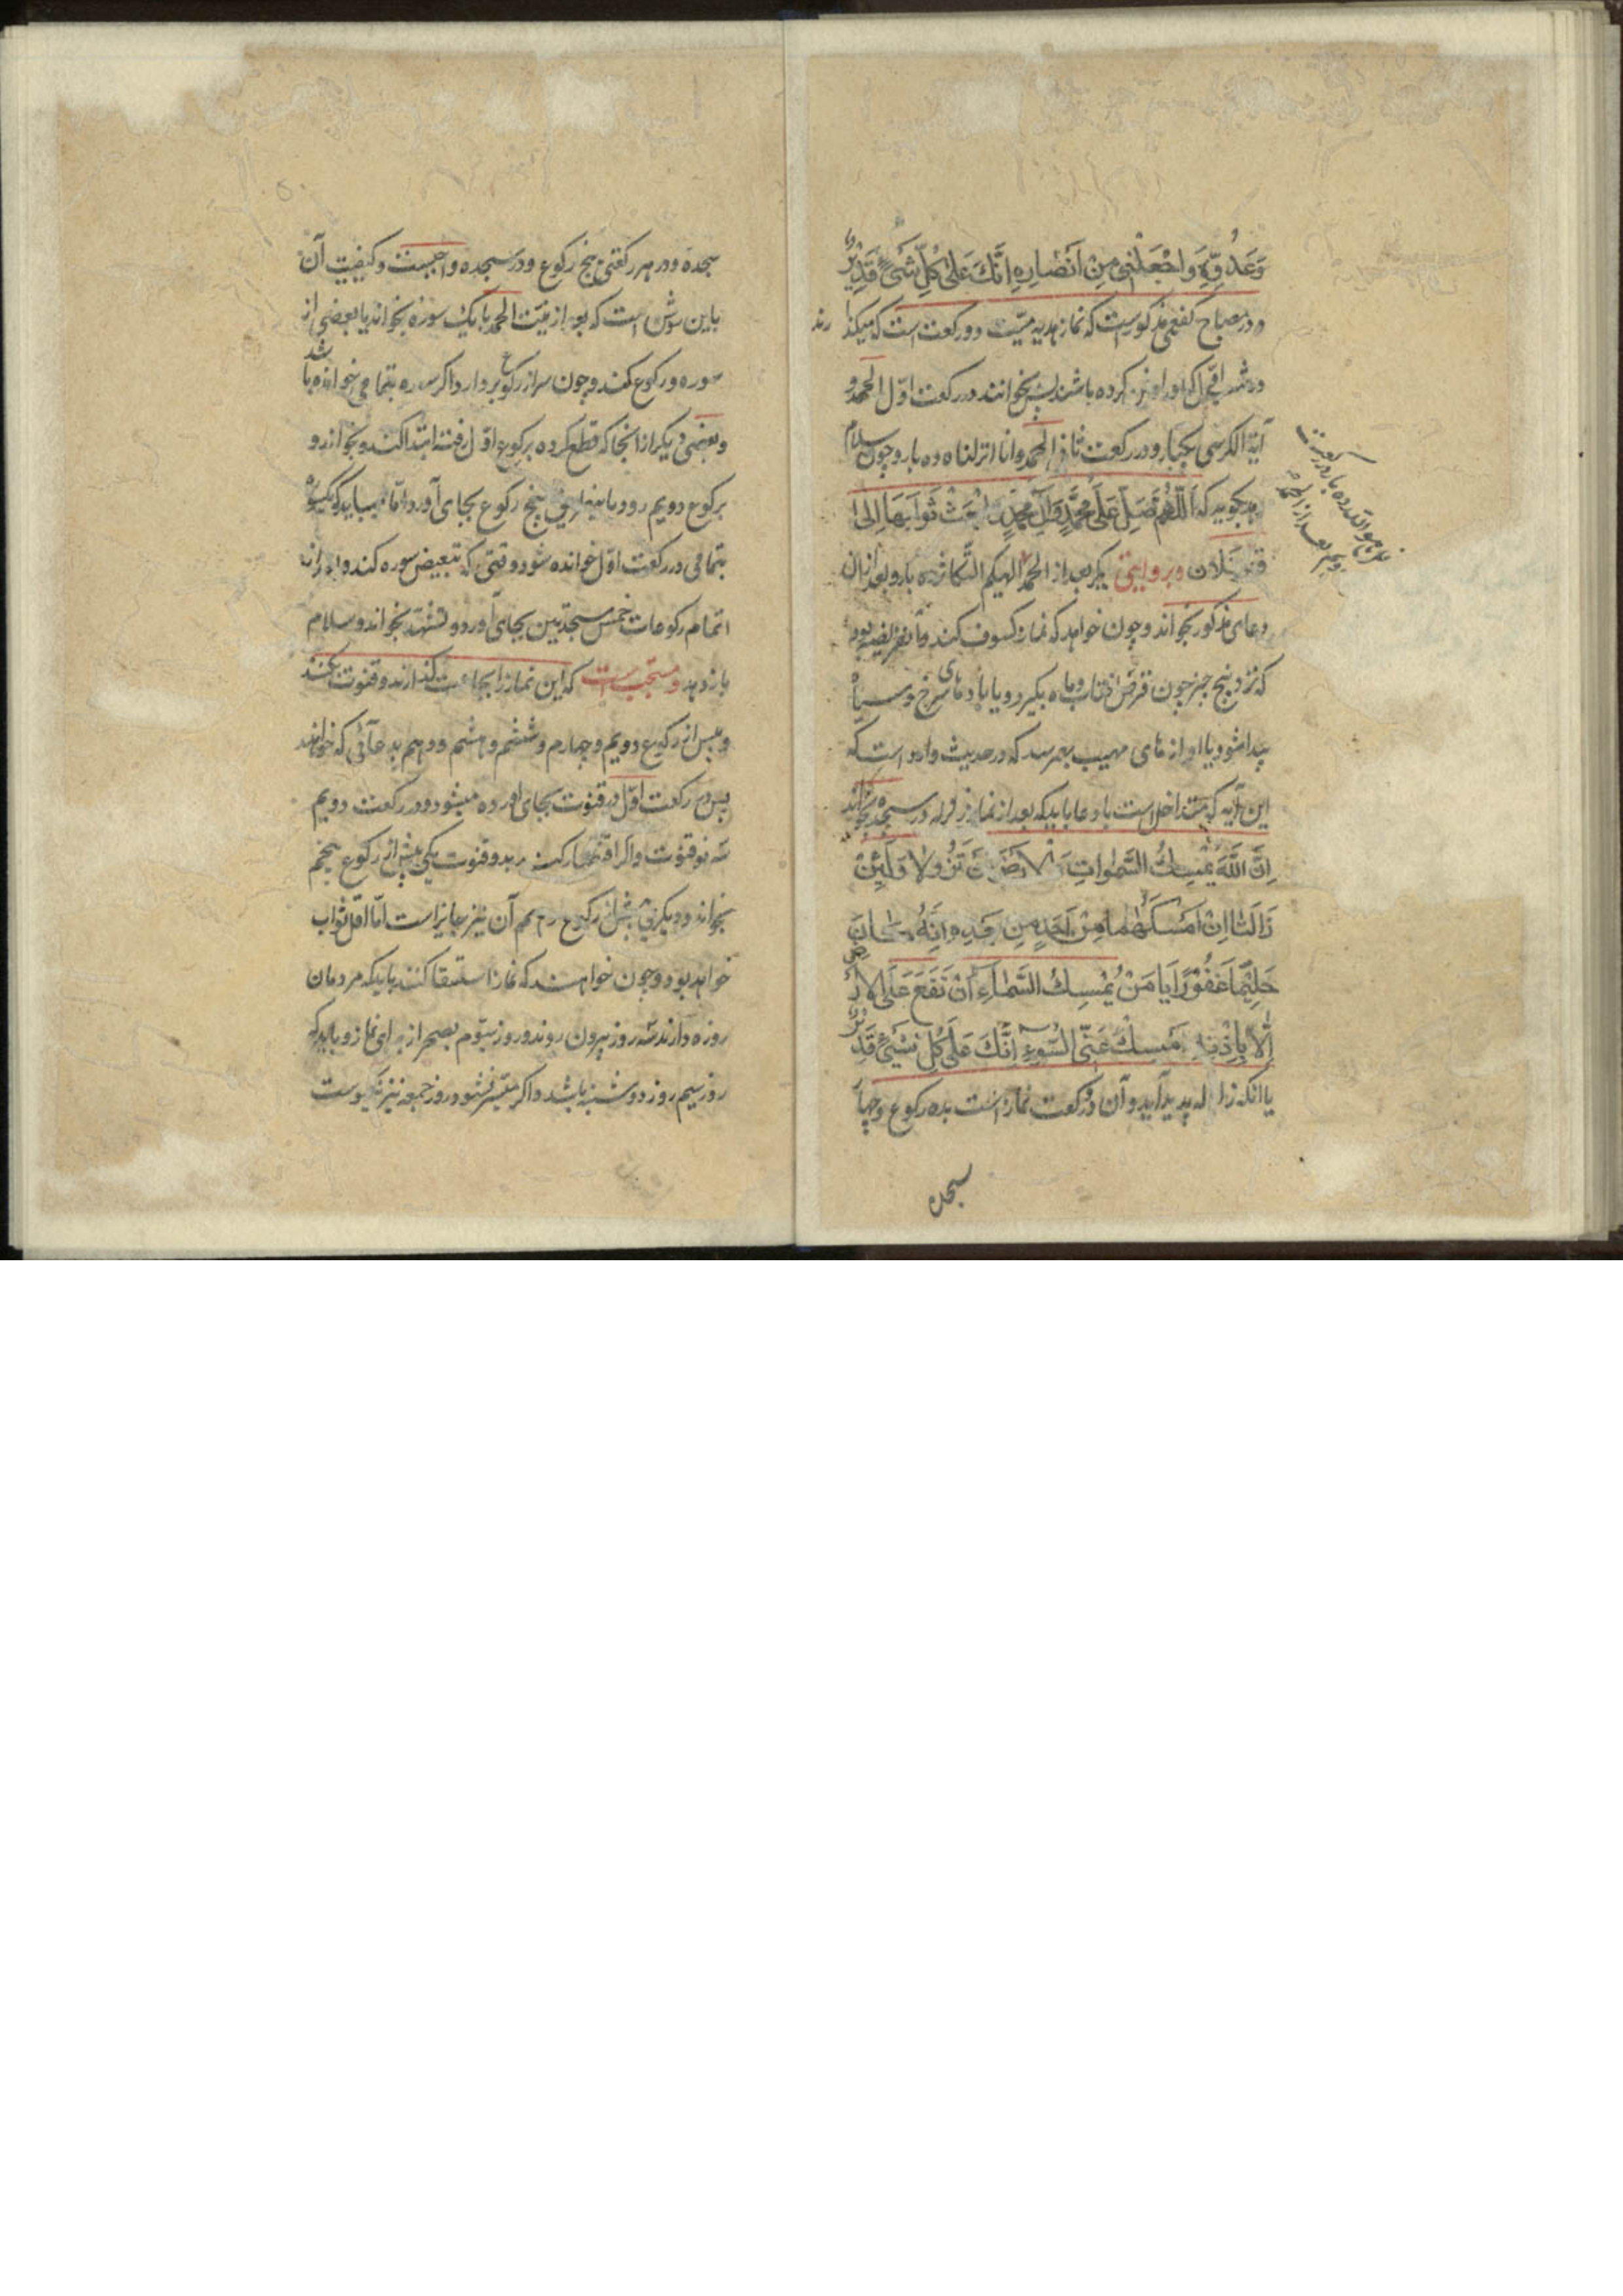 وَعَدُوِّهِ وَاجْعَلْنِی مِنْ اَنْصَارِهِ اِنَّکَ عَلٰی کُلِّ شَیْءٍ قَدِیْرٌ
و در مصباح کفعمی مذکورست که نماز هدیه میّت دو رکعت است که میگذارند
در شب اوّل که او را دفن کرده باشند پس بخوانند در رکعت اوّل الحمد و
آیة الکرسی یکبار و در رکعت ثانی الحمد و انا انزلناه ده بار و چون سلام
بدهد بگوید که اَللّٰهُمَّ صَلِّ عَلٰی مُحَمَّدٍ وَآلِ مُحَمَّدٍ وَابْعَثْ ثَوَابَهَا اِلٰی
قبر فلان و بروایتی دیگر بعد از الحمد الهیکم التکاثر ده بار و بعد از ان
دعای مذکور بخواند و چون خواهد که نماز کسوف کند و آن فریضه بود
که نزد پنج چیز چون قرص افتاب و ماه بگیرد و یا بادهای سرخ و سیاه
پیدا شود یا اوازهای مهیب بهم رسد که در حدیث وارد است که
این آیه که متداخل است با دعا باید که بعد از نماز زلزله در سجده بخواند
اِنَّ اللّٰهَ یُمْسِکُ السَّمٰوَاتِ وَالْاَرْضَ اَنْ تَزُوْلَا وَلَئِنْ
زَالَتَا اِنْ اَمْسَکَهُمَا مِنْ اَحَدٍ مِنْ بَعْدِهِ اِنَّهُ کَانَ
حَلِیْمًا غَفُوْرًا یَا مَنْ یُمْسِکُ السَّمَاءَ اَنْ تَقَعَ عَلَی الْاَرْضِ
اِلَّا بِاِذْنِهِ اَمْسِکْ عَنِّی السُّوْءَ اِنَّکَ عَلٰی کُلِّ شَیْءٍ قَدِیْرٌ
یا انکه زلزله پدید آید و آن دو رکعت نماز است بده رکوع و چهار
سجده
سجده و در هر رکعتی پنج رکوع و دو سجده واجبست و کیفیت آن
باین روش است که بعد از نیّت الحمد با یک سوره بخواند یا بعضی از
سوره و رکوع کند و چون سر از رکوع بردارد اگر سوره بتمامی خوانده باشد
و بعضی دیگر از انجا که قطع کرده برکوع اوّل رفته ابتدا کند و بخواند و
برکوع دویم رود پنج رکوع بجای آورد امّا میباید که یکسوره
بتمامی در رکعت اوّل خوانده شود وقتی که تبعیض سوره کند و بعد از
اتمام رکوعات خمس سجدتین بجای آورد و تشهّد بخواند و سلام
باز دهد و مستحب است که این نماز را بجماعت گذارند و قنوت کنند
و پس از رکوع دویم و چهارم و ششم و هشتم و دهم بدعائی که خواهند
پس در رکعت اوّل دو قنوت بجای آورده میشود و در رکعت دویم
سه قنوت و اگر اقتصار کند بدو قنوت یکی پیش از رکوع پنجم
بخواند و دیگری پیش از رکوع دهم آن نیز جایز است امّا اقل ثواب
خواهد بود و چون خواهند که نماز استسقا کنند باید که مردمان
روزه دارند سه روز بیرون روند و روز سیّوم بصحرا از برای نماز و باید که
روز سیم روز دوشنبه باشد و اگر میّسر نشود روز جمعه نیز نیکوست